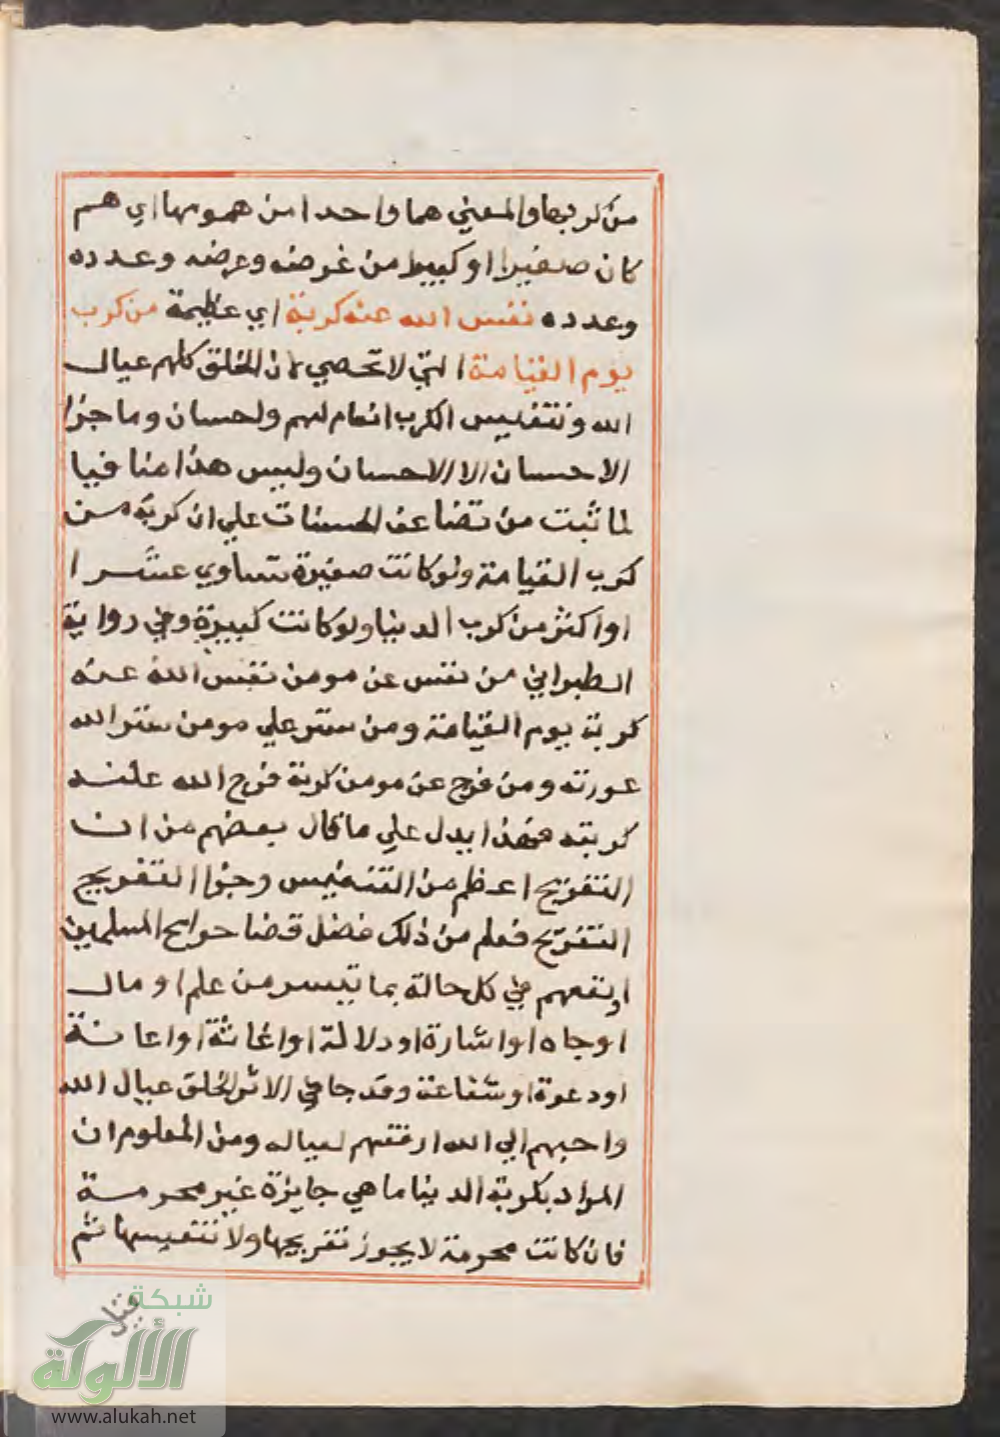 من كربها والمعني هما واحدا من همومها اي هم
كان صغيرا او كبيرا من غرضه وعرضه وعدده
وعدده نفس الله عنه كربة اي عظيمة من كرب
يوم القيامة التي لا تحصي لان الخلق كلهم عيال
الله وتنفيس الكرب انعام لهم واحسان وما جزا
الاحسان الا الاحسان وليس هذا منافيا
لما ثبت من تضاعف الحسنات علي ان كربة من
كرب القيامة ولو كانت صغيرة تساوي عشرا
او اكثر من كرب الدنيا ولو كانت كبيرة وفي رواية
الطبراني من نفس عن مومن نفس الله عنه
كربة يوم القيامة ومن ستر علي مومن ستر الله
عورته ومن فرج عن مومن كربة فرج الله عنه
كربته فهذا يدل علي ما قال بعضهم من ان
التفريج اعظم من التنفيس وجزا التفريج
التفريج فعلم من ذلك فضل قضا حوايج المسلمين
اونفعهم في كل حالة بما تيسر من علم او مال
او جاه او اشارة او دلالة او اغاثة او اعانة
او دعوة او شفاعة وقد جا في الاثر الخلق عيال الله
واحبهم الي الله ارفقهم لعياله ومن المعلوم ان
المراد بكربة الدنيا ما هي جايزة غير محرمة
فان كانت محرمة لا يجوز تفريجها ولا تنفيسها ثم
شبكة
الألوكة
www.alukah.net